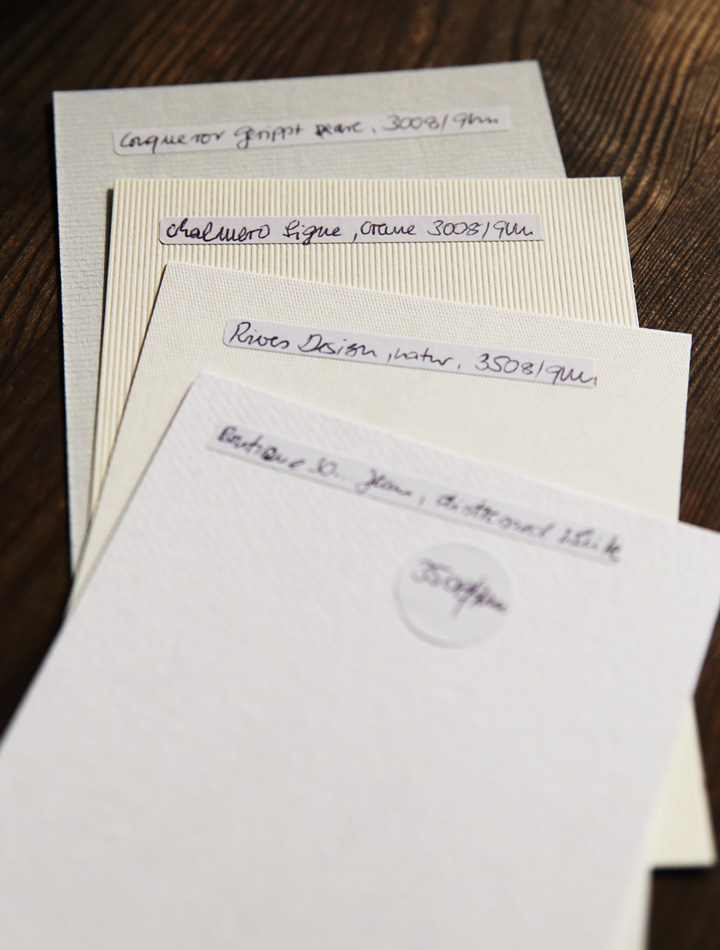 Conqueror gerippt , 300g/qm
Chalmero Ligne , Creme 300g/qm
Rives Design , natur , 350g/qm
Boutique
350g/qm